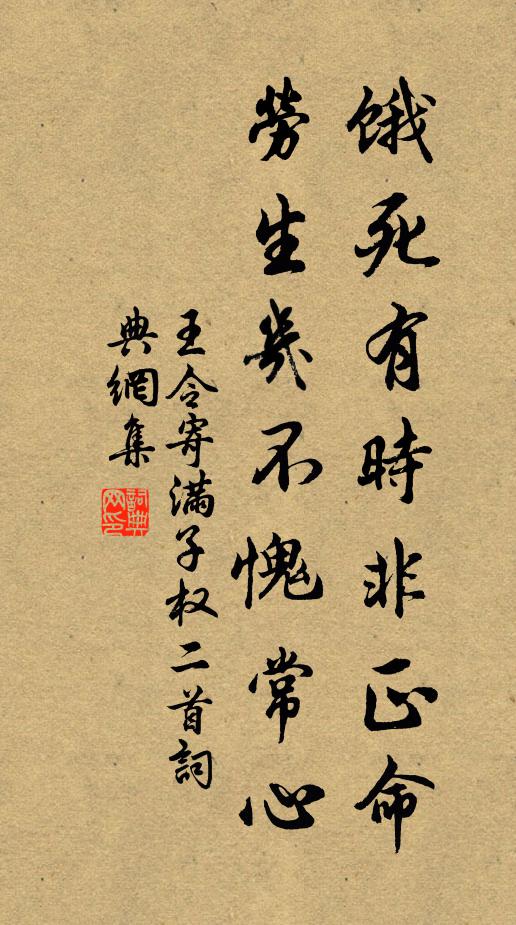 餓死有時非正命
勞生幾不愧常心
王令寄滿子权二首詞
典網集
詞典
网印